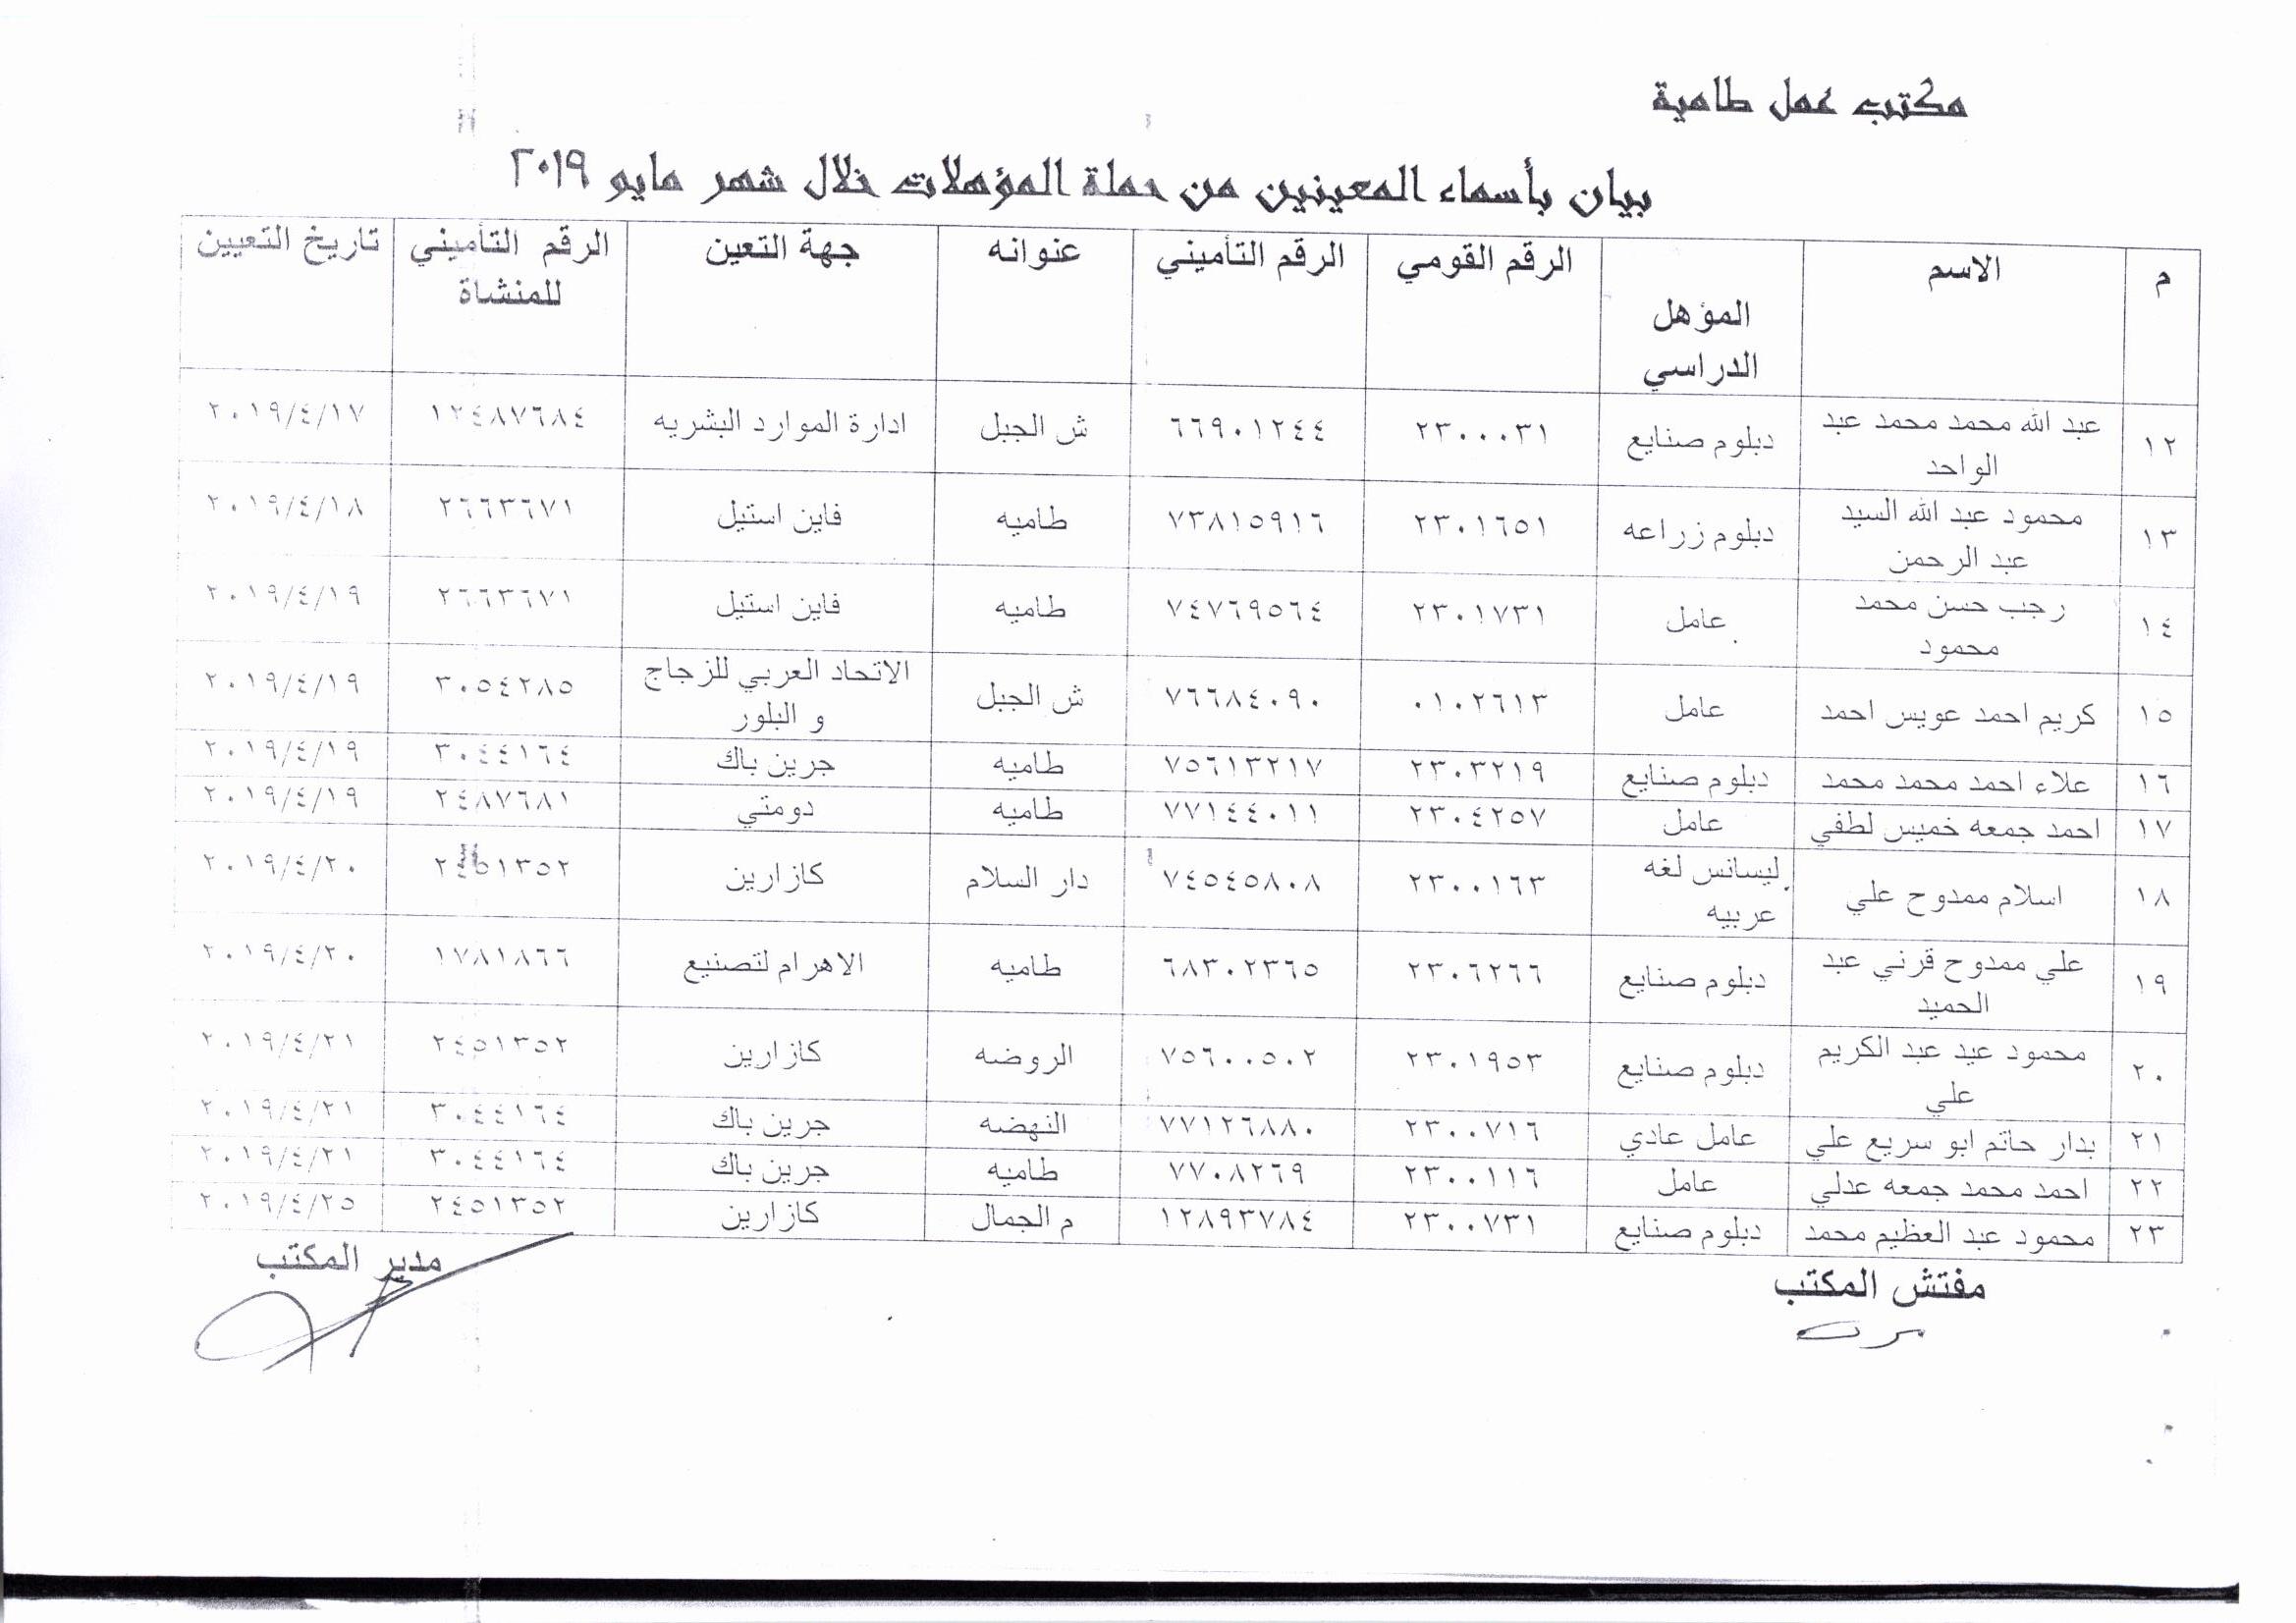 مكتب عمل طامية
بيان بأسماء المعينين من حملة المؤهلات خلال شهر مايو ٢٠١٩
م الاسم المؤهل الدراسي الرقم القومي الرقم التأميني عنوانه جهة التعين الرقم التأميني للمنشاة تاريخ التعيين
١٢ عبد الله محمد محمد عبد الواحد دبلوم صنايع ٢٣٠٠٠٣١ ٦٦٩٠١٢٤٤ ش الجبل ادارة الموارد البشريه ١٢٤٨٧٦٨٤ ٢٠١٩/٤/١٧
١٣ محمود عبد الله السيد عبد الرحمن دبلوم زراعه ٢٣٠١٦٥١ ٧٣٨١٥٩١٦ طاميه فاين استيل ٢٦٦٣٦٧١ ٢٠١٩/٤/١٨
١٤ رجب حسن محمد محمود عامل ٢٣٠١٧٣١ ٧٤٧٦٩٥٦٤ طاميه فاين استيل ٢٦٦٣٦٧١ ٢٠١٩/٤/١٩
١٥ كريم احمد عويس احمد عامل ٠١٠٢٦١٣ ٧٦٦٨٤٠٩٠ ش الجبل الاتحاد العربي للزجاج و البلور ٣٠٥٤٢٨٥ ٢٠١٩/٤/١٩
١٦ علاء احمد محمد محمد دبلوم صنايع ٢٣٠٣٢١٩ ٧٥٦١٣٢١٧ طاميه جرين باك ٣٠٤٤١٦٤ ٢٠١٩/٤/١٩
١٧ احمد جمعه خميس لطفي عامل ٢٣٠٤٢٥٧ ٧٧١٤٤٠١١ طاميه دومتي ٢٤٨٧٦٨١ ٢٠١٩/٤/١٩
١٨ اسلام ممدوح علي ليسانس لغه عربيه ٢٣٠٠١٦٣ ٧٤٥٤٥٨٠٨ دار السلام كازارين ٢٤٥١٣٥٢ ٢٠١٩/٤/٢٠
١٩ علي ممدوح قرني عبد الحميد دبلوم صنايع ٢٣٠٦٢٦٦ ٦٨٣٠٢٣٦٥ طاميه الاهرام لتصنيع ١٧٨١٨٦٦ ٢٠١٩/٤/٢٠
٢٠ محمود عيد عبد الكريم علي دبلوم صنايع ٢٣٠١٩٥٣ ٧٥٦٠٠٥٠٢ الروضه كازارين ٢٤٥١٣٥٢ ٢٠١٩/٤/٢١
٢١ بدار حاتم ابو سريع علي عامل عادي ٢٣٠٠٧١٦ ٧٧١٢٦٨٨٠ النهضه جرين باك ٣٠٤٤١٦٤ ٢٠١٩/٤/٢١
٢٢ احمد محمد جمعه عدلي عامل ٢٣٠٠١١٦ ٧٧٠٨٢٦٩ طاميه جرين باك ٣٠٤٤١٦٤ ٢٠١٩/٤/٢١
٢٣ محمود عبد العظيم محمد دبلوم صنايع ٢٣٠٠٧٣١ ١٢٨٩٣٧٨٤ م الجمال كازارين ٢٤٥١٣٥٢ ٢٠١٩/٤/٢٥
مفتش المكتب مدير المكتب